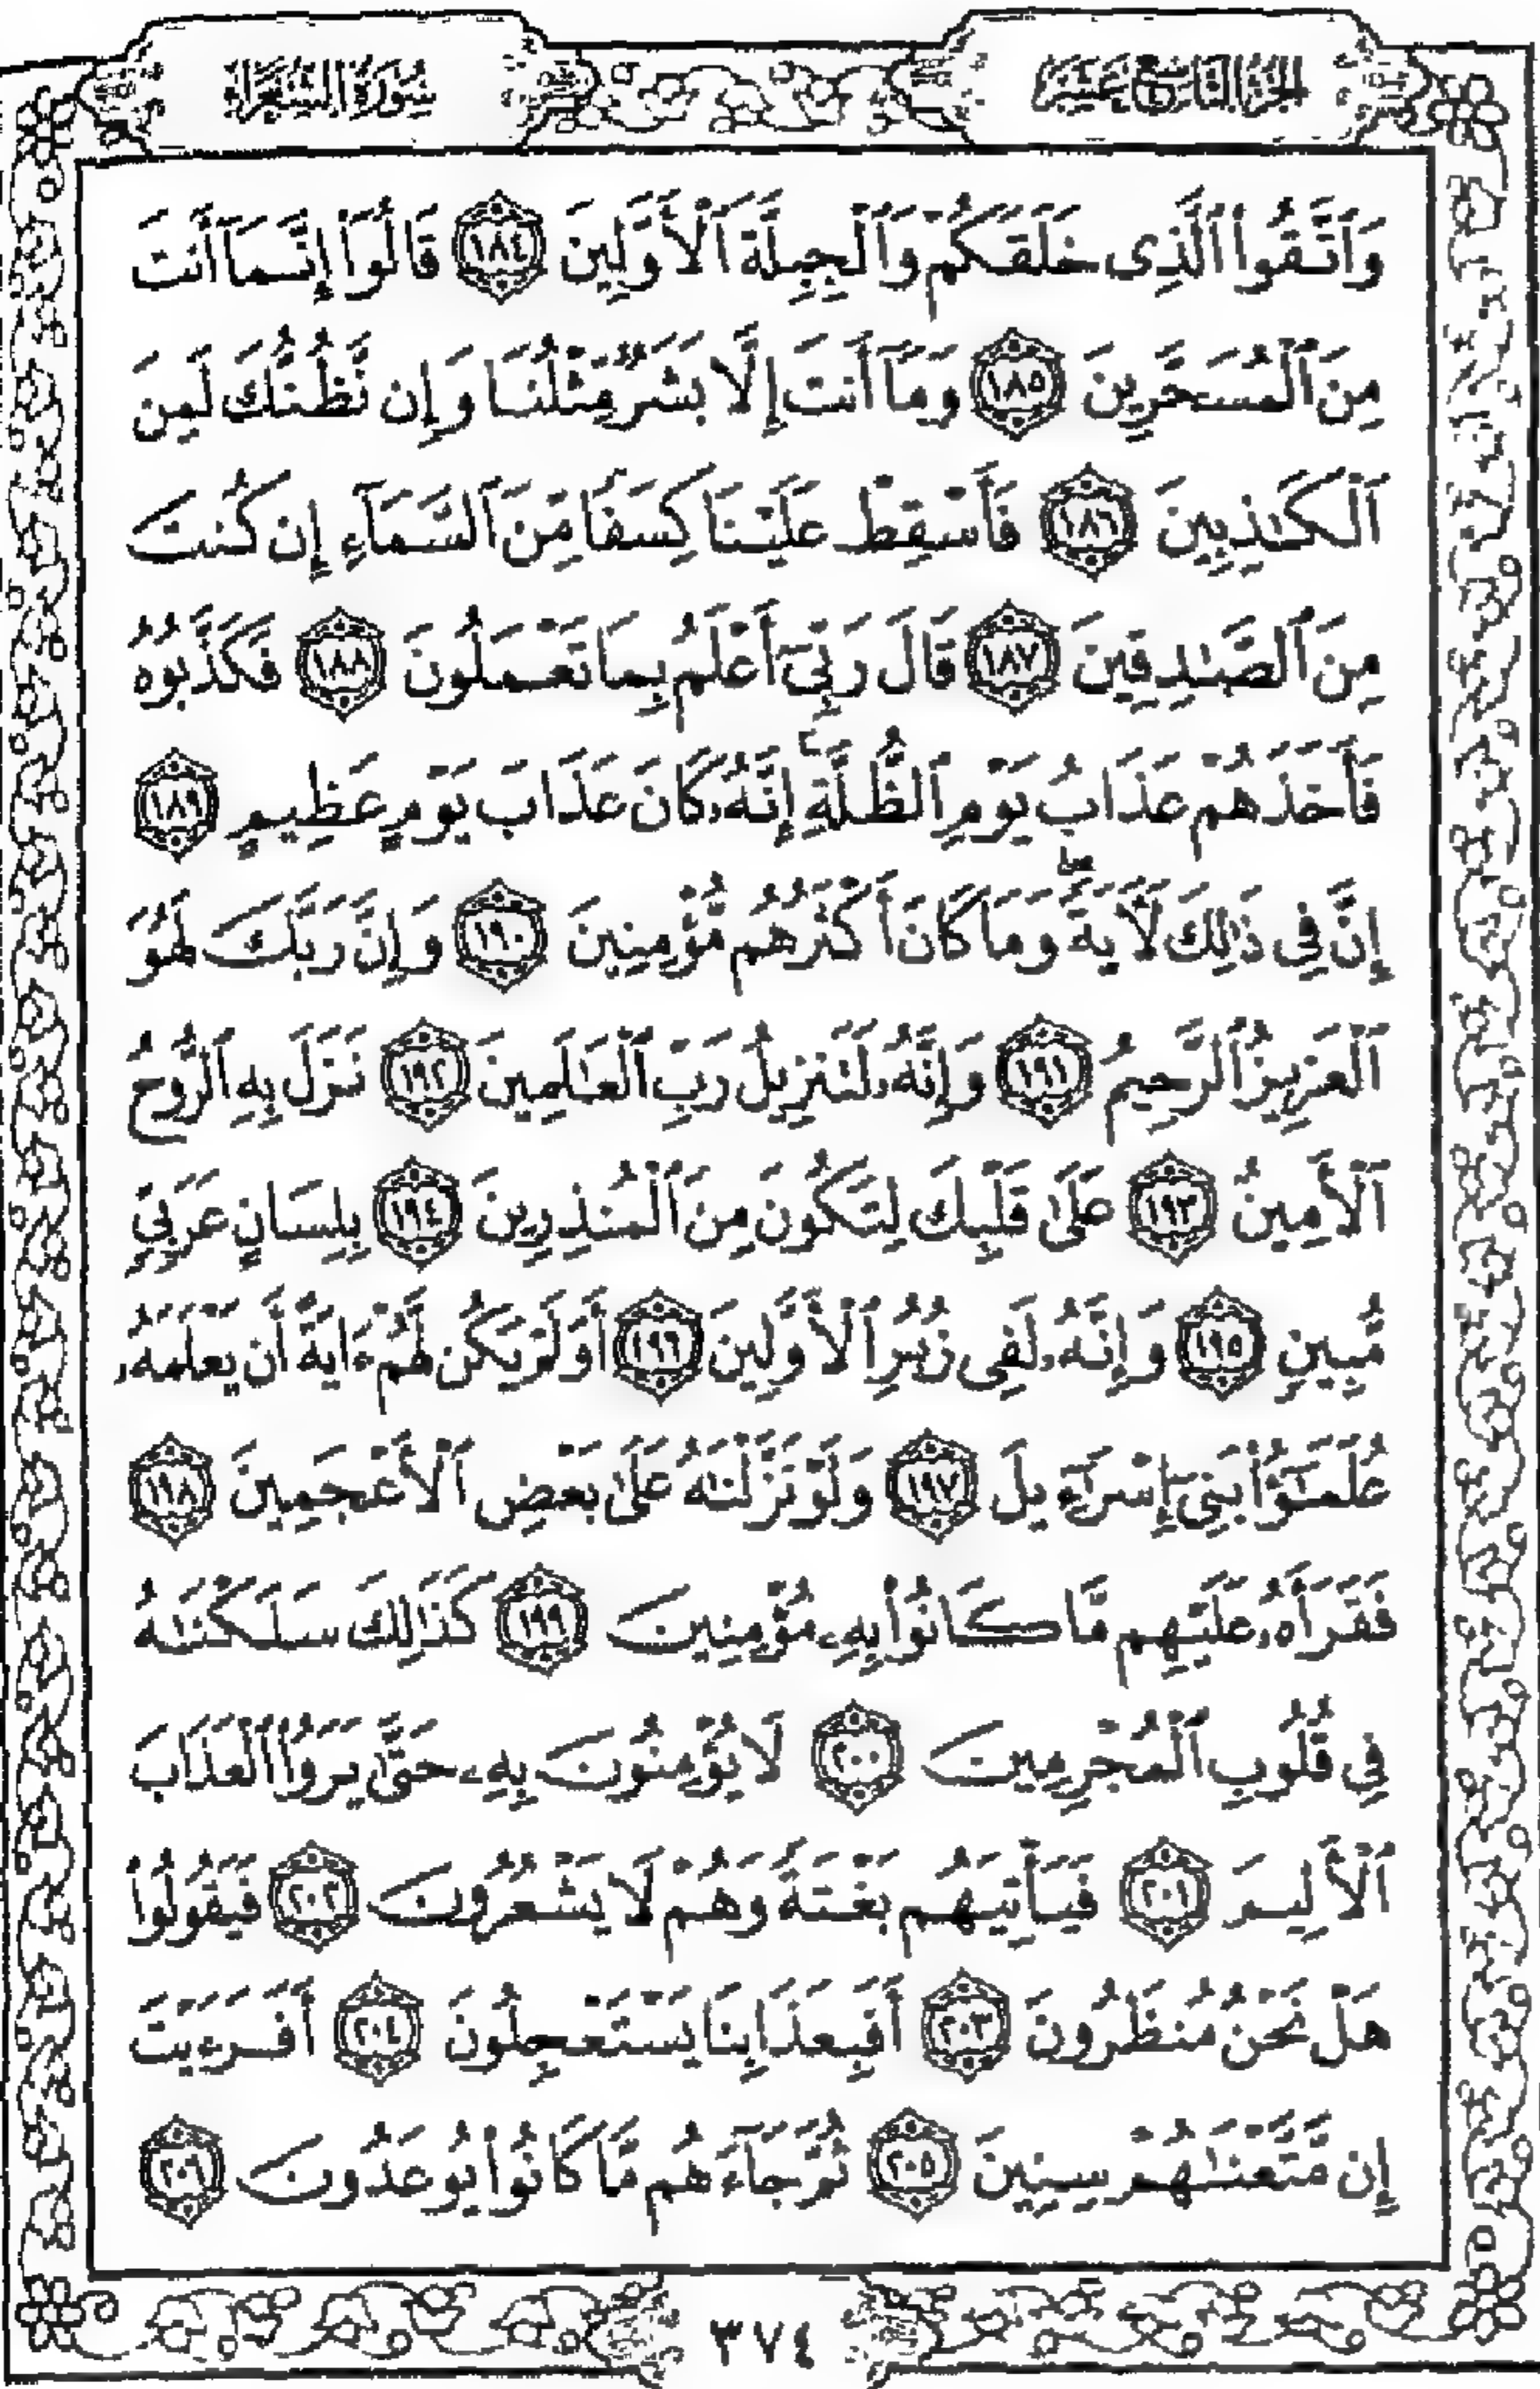 الجزء التاسع عشر
سورة الشعراء
وَٱتَّقُوا۟ ٱلَّذِى خَلَقَكُمْ وَٱلْجِبِلَّةَ ٱلْأَوَّلِينَ ١٨٤ قَالُوٓا۟ إِنَّمَآ أَنتَ
مِنَ ٱلْمُسَحَّرِينَ ١٨٥ وَمَآ أَنتَ إِلَّا بَشَرٌ مِّثْلُنَا وَإِن نَّظُنُّكَ لَمِنَ
ٱلْكَٰذِبِينَ ١٨٦ فَأَسْقِطْ عَلَيْنَا كِسَفًا مِّنَ ٱلسَّمَآءِ إِن كُنتَ
مِنَ ٱلصَّٰدِقِينَ ١٨٧ قَالَ رَبِّىٓ أَعْلَمُ بِمَا تَعْمَلُونَ ١٨٨ فَكَذَّبُوهُ
فَأَخَذَهُمْ عَذَابُ يَوْمِ ٱلظُّلَّةِ ۚ إِنَّهُۥ كَانَ عَذَابَ يَوْمٍ عَظِيمٍ ١٨٩
إِنَّ فِى ذَٰلِكَ لَءَايَةً ۖ وَمَا كَانَ أَكْثَرُهُم مُّؤْمِنِينَ ١٩٠ وَإِنَّ رَبَّكَ لَهُوَ
ٱلْعَزِيزُ ٱلرَّحِيمُ ١٩١ وَإِنَّهُۥ لَتَنزِيلُ رَبِّ ٱلْعَٰلَمِينَ ١٩٢ نَزَلَ بِهِ ٱلرُّوحُ
ٱلْأَمِينُ ١٩٣ عَلَىٰ قَلْبِكَ لِتَكُونَ مِنَ ٱلْمُنذِرِينَ ١٩٤ بِلِسَانٍ عَرَبِىٍّ
مُّبِينٍ ١٩٥ وَإِنَّهُۥ لَفِى زُبُرِ ٱلْأَوَّلِينَ ١٩٦ أَوَلَمْ يَكُن لَّهُمْ ءَايَةً أَن يَعْلَمَهُۥ
عُلَمَٰٓؤُا۟ بَنِىٓ إِسْرَٰٓءِيلَ ١٩٧ وَلَوْ نَزَّلْنَٰهُ عَلَىٰ بَعْضِ ٱلْأَعْجَمِينَ ١٩٨
فَقَرَأَهُۥ عَلَيْهِم مَّا كَانُوا۟ بِهِۦ مُؤْمِنِينَ ١٩٩ كَذَٰلِكَ سَلَكْنَٰهُ
فِى قُلُوبِ ٱلْمُجْرِمِينَ ٢٠٠ لَا يُؤْمِنُونَ بِهِۦ حَتَّىٰ يَرَوُا۟ ٱلْعَذَابَ
ٱلْأَلِيمَ ٢٠١ فَيَأْتِيَهُم بَغْتَةً وَهُمْ لَا يَشْعُرُونَ ٢٠٢ فَيَقُولُوا۟
هَلْ نَحْنُ مُنظَرُونَ ٢٠٣ أَفَبِعَذَابِنَا يَسْتَعْجِلُونَ ٢٠٤ أَفَرَءَيْتَ
إِن مَّتَّعْنَٰهُمْ سِنِينَ ٢٠٥ ثُمَّ جَآءَهُم مَّا كَانُوا۟ يُوعَدُونَ ٢٠٦
٣٧٤